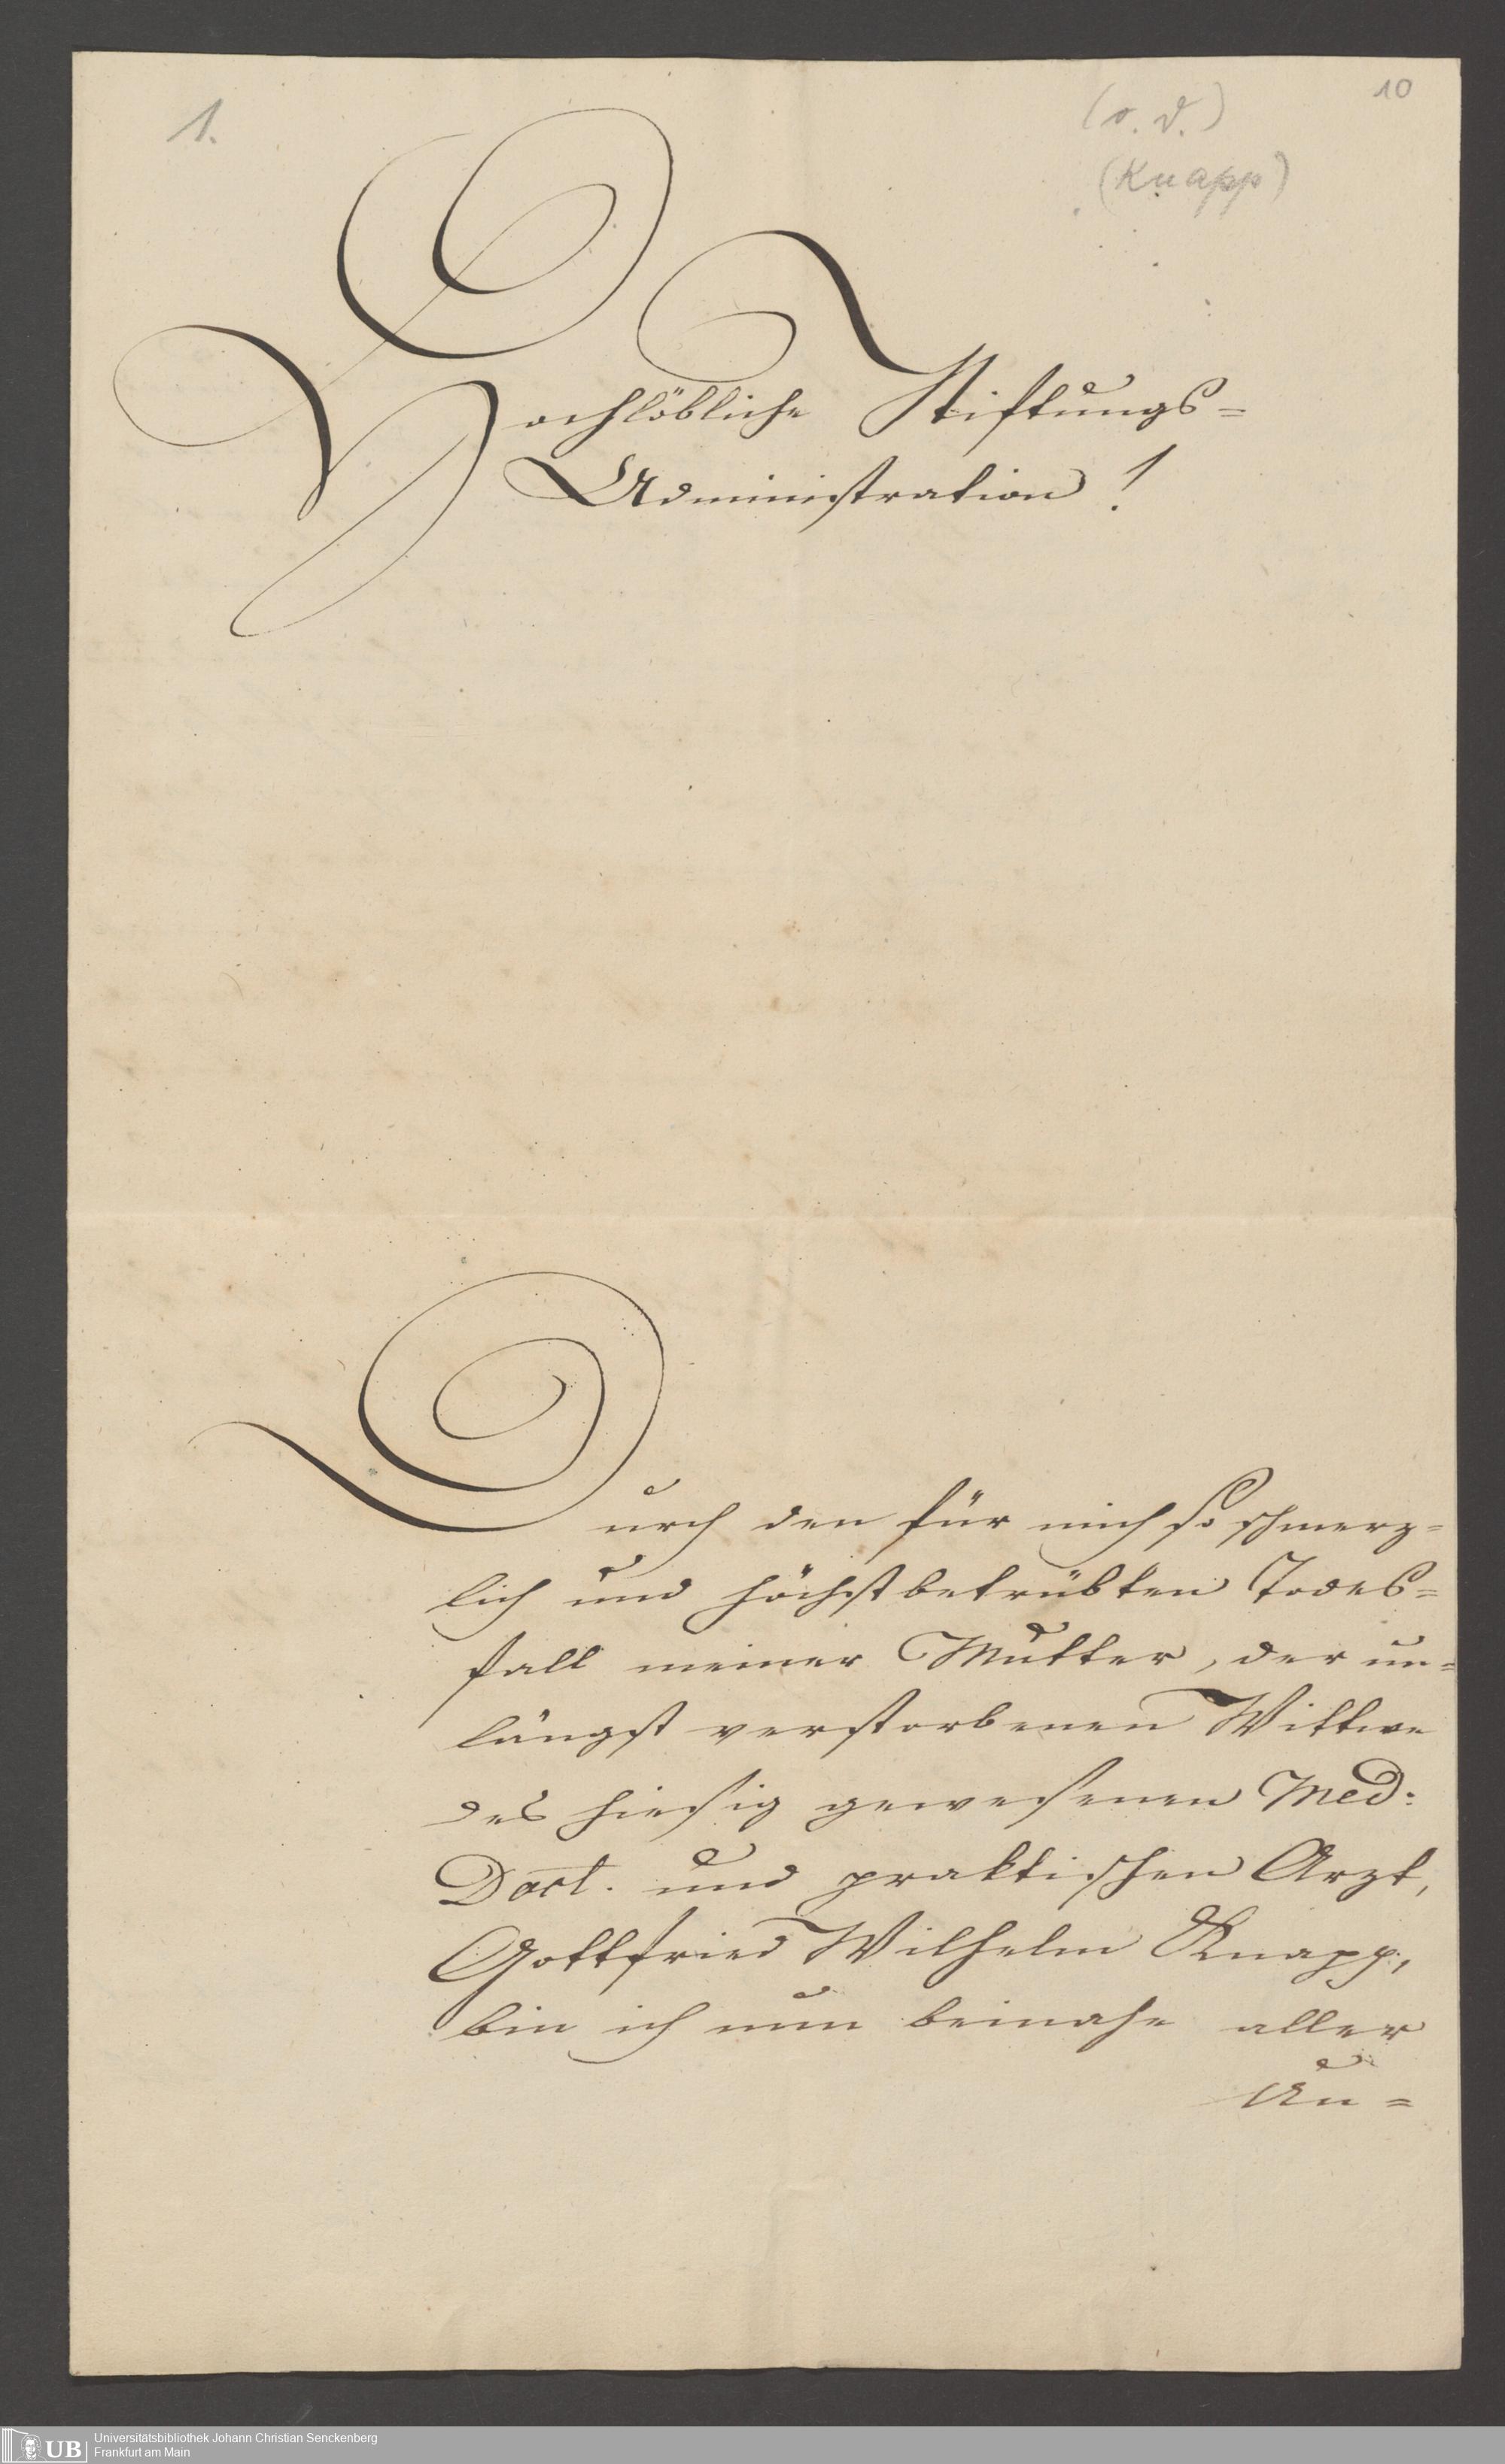 1.
10
(o. D.)
(Knapp)
Hochlöbliche Stiftungs=
Administration!
Durch den für mich so schmerz=
lich und höchstbetrübten Todes=
fall meiner Mutter, der un=
längst verstorbenen Wittwe
des hiesig gewesenen Med:
Doct. und praktischen Arzt,
Gottfried Wilhelm Knapp,
bin ich nun beinahe aller
Un=
UB
Universitätsbibliothek Johann Christian Senckenberg
Frankfurt am Main